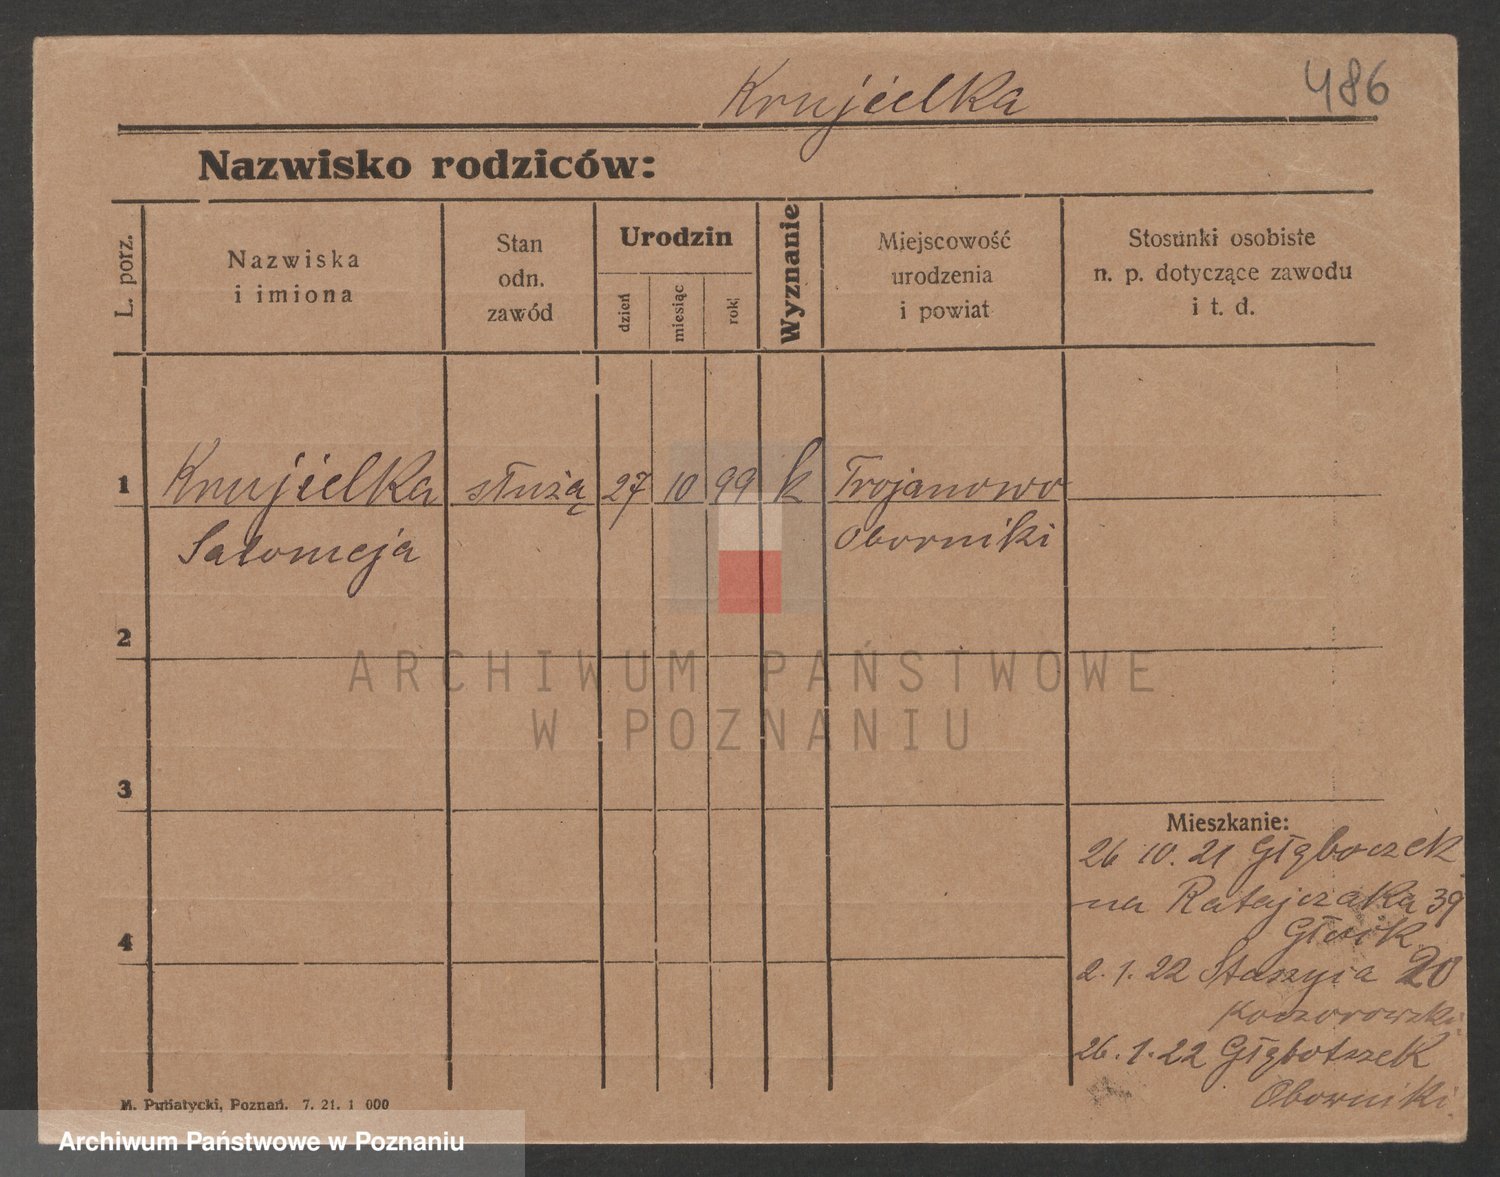 Krujielka
486
Nazwisko rodziców:
L. porz.
Nazwiska
i imiona
Stan
odn.
zawód
Urodzin
dzień
miesiąc
rok
Wyznanie
Miejscowość
urodzenia
i powiat
Stosunki osobiste
n. p. dotyczące zawodu
i t. d.
1 Krujielka służą 27 10 99 k Trojanowo
Salomeja Oborniki
2
3
4
Mieszkanie:
26 10. 21 Głęboczek
na Ratajczaka 39
2. 1. 22 Staszyca 20
26. 1. 22 Głębotszek
Oborniki.
M. Putiatycki, Poznań. 7. 21. 1 000
ARCHIWUM PAŃSTWOWE
W POZNANIU
Archiwum Państwowe w Poznaniu